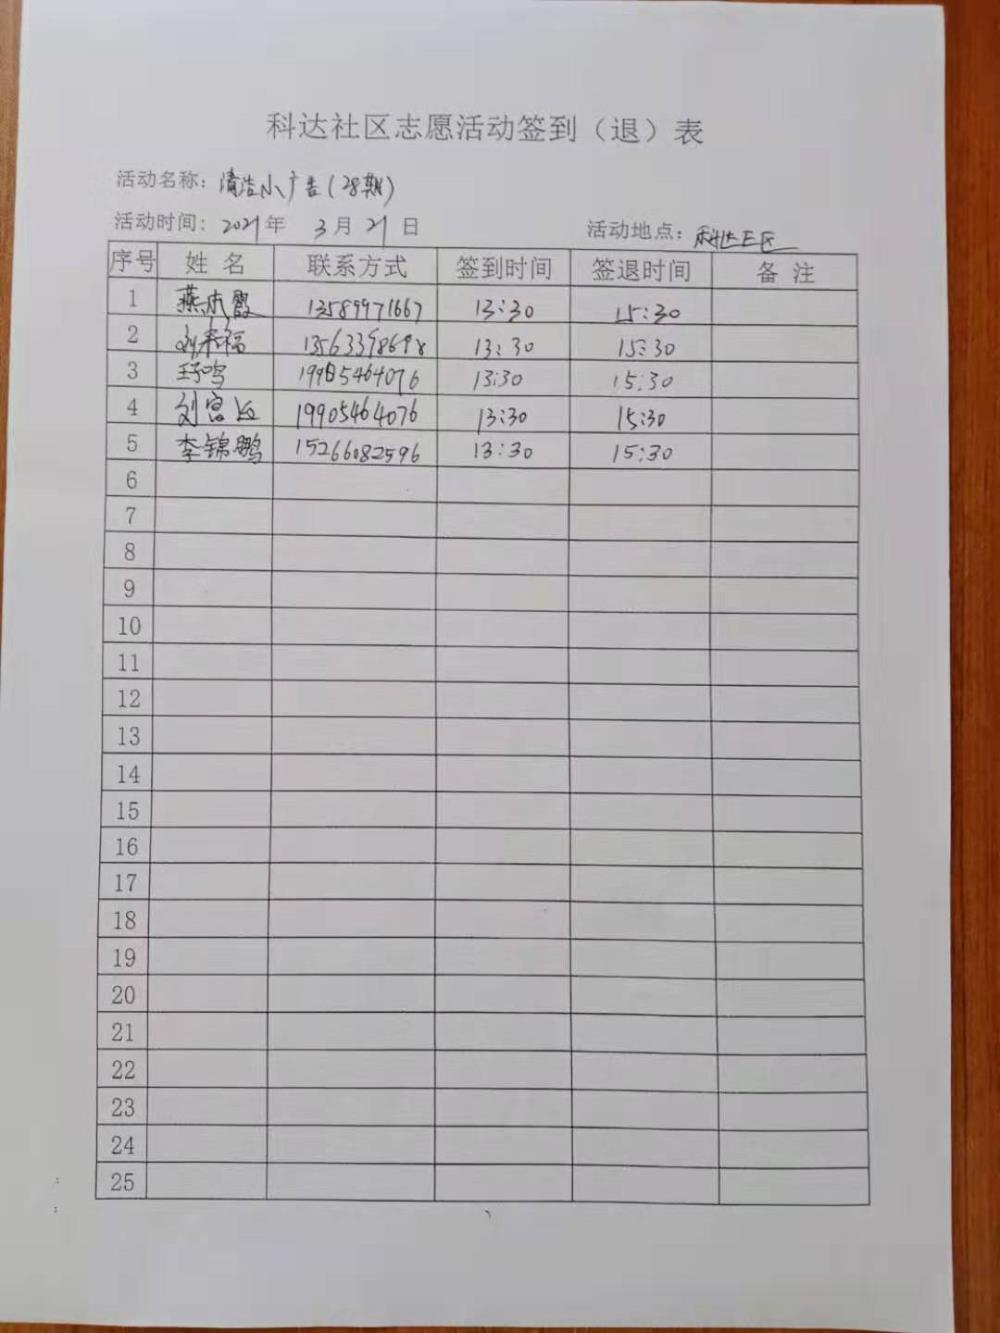 科达社区志愿活动签到（退）表
活动名称：清洁小广告(28期)
活动时间：2021年 3月21日 活动地点：科达社区
序号 姓名 联系方式 签到时间 签退时间 备注
1 燕 霞 13589971667 13:30 15:30
2 刘来福 13563398698 13:30 15:30
3 鸣 19905464076 13:30 15:30
4 刘 19905464076 13:30 15:30
5 李锦鹏 15266082596 13:30 15:30
6
7
8
9
10
11
12
13
14
15
16
17
18
19
20
21
22
23
24
25